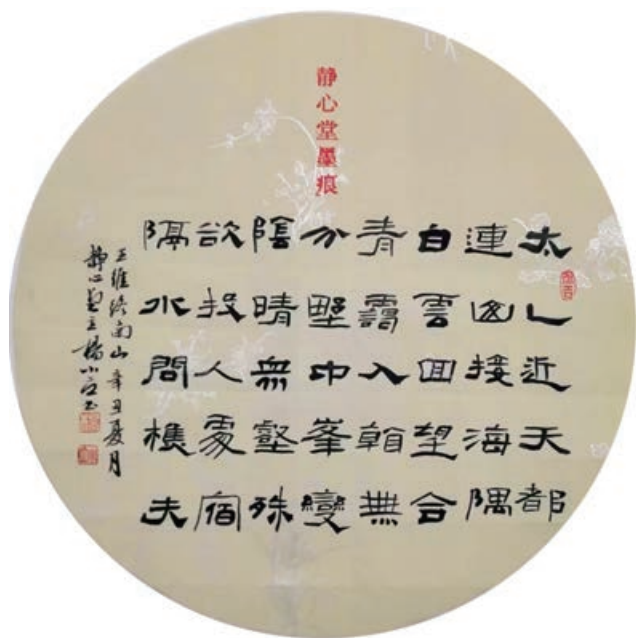 静心堂墨痕
太乙近天都
連山接海隅
白雲回望合
青靄入看無
分野中峯變
陰晴衆壑殊
欲投人處宿
隔水問樵夫
王維終南山 辛丑夏月
靜心堂主楊小